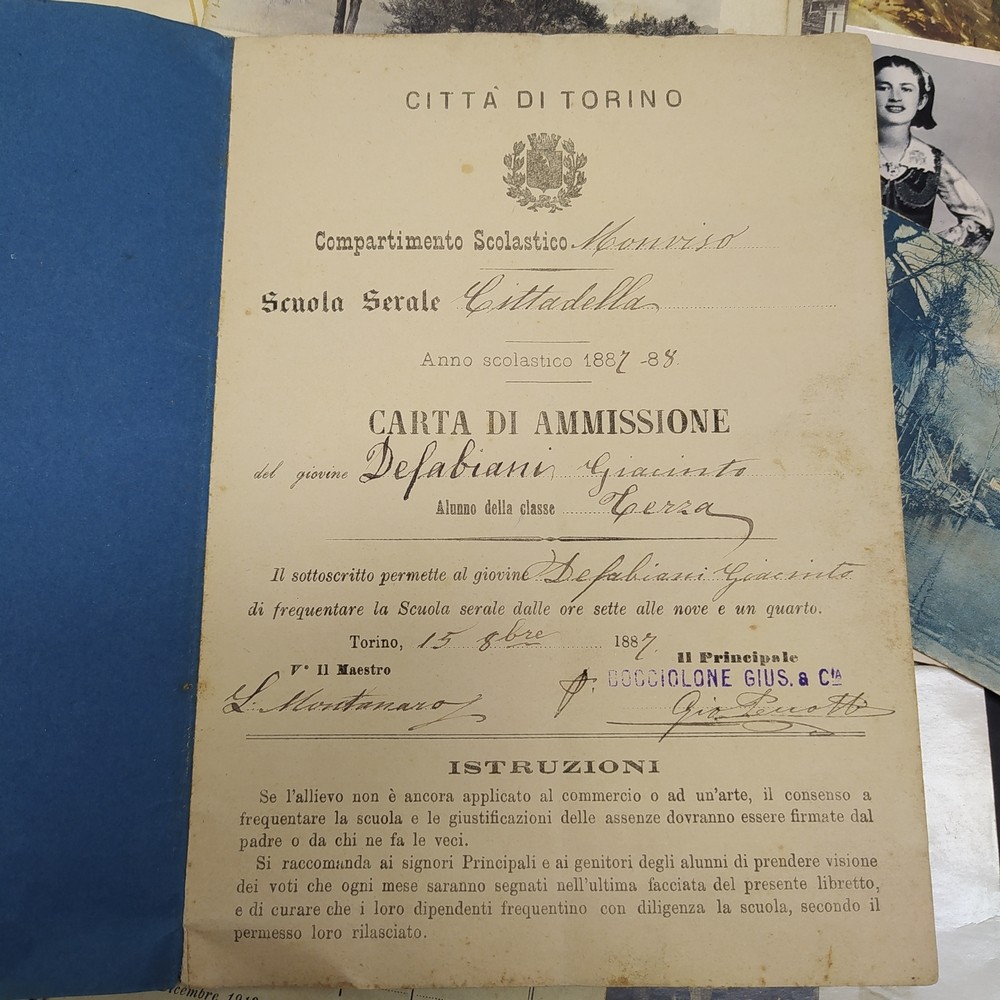 CITTÀ DI TORINO
Compartimento Scolastico Monviso
Scuola Serale Cittadella
Anno scolastico 1887-88.
CARTA DI AMMISSIONE
del giovine Defabiani Giacinto
Alunno della classe Terza
Il sottoscritto permette al giovine Defabiani Giacinto
di frequentare la Scuola serale dalle ore sette alle nove e un quarto.
Torino, 15 8bre 1887.
V° Il Maestro
Il Principale
L. Montanaro
p. BOCCIOLONE GIUS. & CIA
Gio.
ISTRUZIONI
Se l'allievo non è ancora applicato al commercio o ad un'arte, il consenso a
frequentare la scuola e le giustificazioni delle assenze dovranno essere firmate dal
padre o da chi ne fa le veci.
Si raccomanda ai signori Principali e ai genitori degli alunni di prendere visione
dei voti che ogni mese saranno segnati nell'ultima facciata del presente libretto,
e di curare che i loro dipendenti frequentino con diligenza la scuola, secondo il
permesso loro rilasciato.